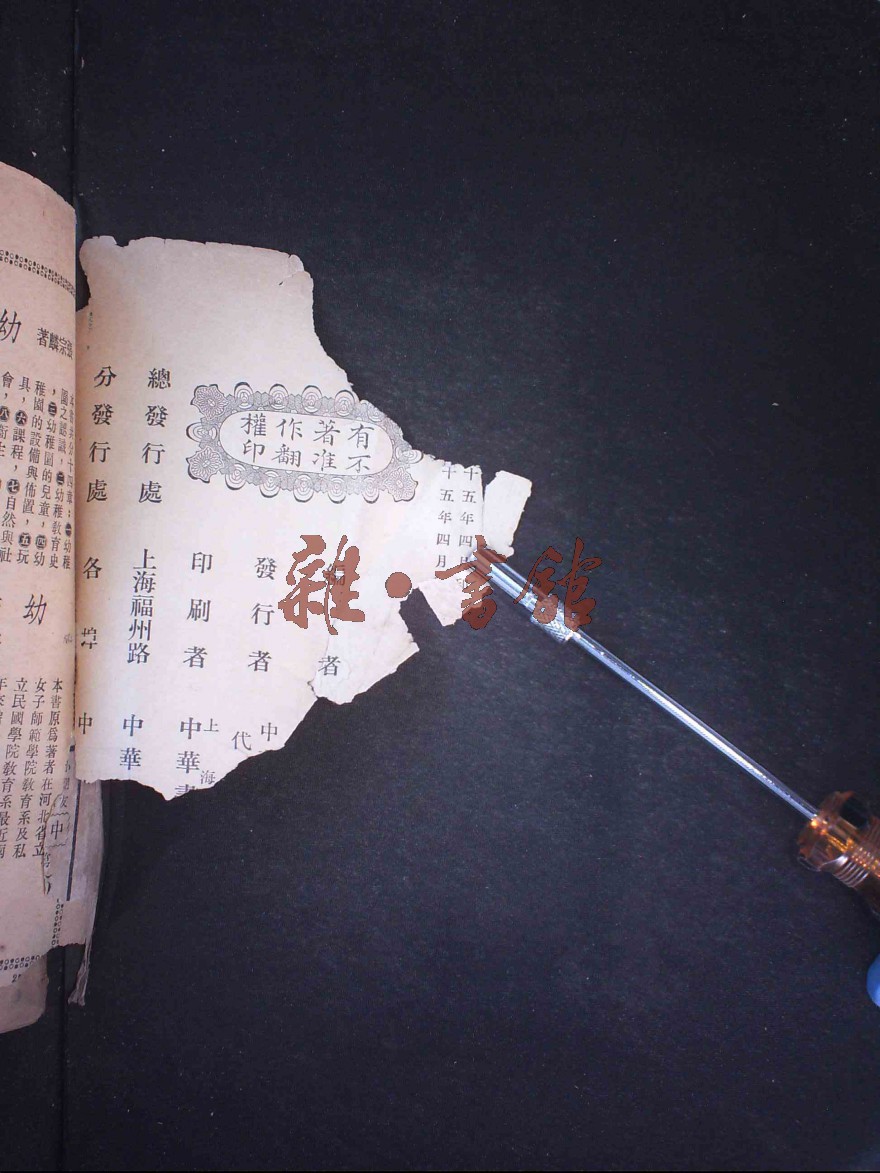 十五年四月
十五年四月
有著作權
不准翻印
編
者
發行者
中
代
印刷者
上海
中華
總發行處
上海福州路
中華
分發行處
各埠
中
張宗麟著
幼
本書共分十四章:㊀幼稚
園之認識,㊁幼稚敎育史
,㊂幼稚園的兒童,㊃幼
稚園的設備與佈置,㊄玩
具,㊅課程,㊆自然與社
會,㊇衞生
幼
本書原爲著者在河北省立
女子師範學院敎育系及私
立民國學院敎育系最近兩
中
雜·書館